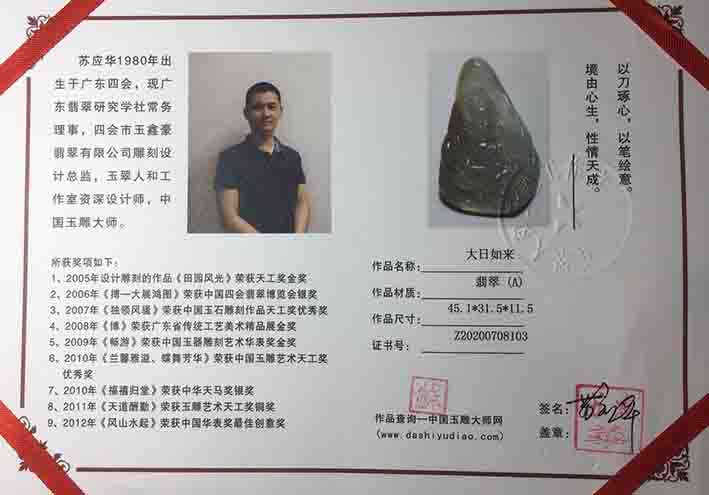 苏应华1980年出
生于广东四会，现广
东翡翠研究学社常务
理事，四会市玉鑫豪
翡翠有限公司雕刻设
计总监，玉翠人和工
作室资深设计师，中
国玉雕大师。
以刀琢心，以笔绘意。
境由心生，性情天成。
所获奖项如下：
1、2005年设计雕刻的作品《田园风光》荣获天工奖金奖
2、2006年《搏一大展鸿图》荣获中国四会翡翠博览会银奖
3、2007年《独领风骚》荣获中国玉石雕刻作品天工奖优秀奖
4、2008年《博》荣获广东省传统工艺美术精品展金奖
5、2009年《畅游》荣获中国玉器雕刻艺术华表奖金奖
6、2010年《兰馨雅溢、蝶舞芳华》荣获中国玉雕艺术天工奖
优秀奖
7、2010年《福禧归堂》荣获中华天马奖银奖
8、2011年《天道酬勤》荣获玉雕艺术天工奖铜奖
9、2012年《风山水起》荣获中国华表奖最佳创意奖
作品名称：大日如来
作品材质：翡翠（A）
作品尺寸：45.1*31.5*11.5
证书号：Z20200708103
作品查询—中国玉雕大师网
(www.dashiyudiao.com)
签名：
盖章：